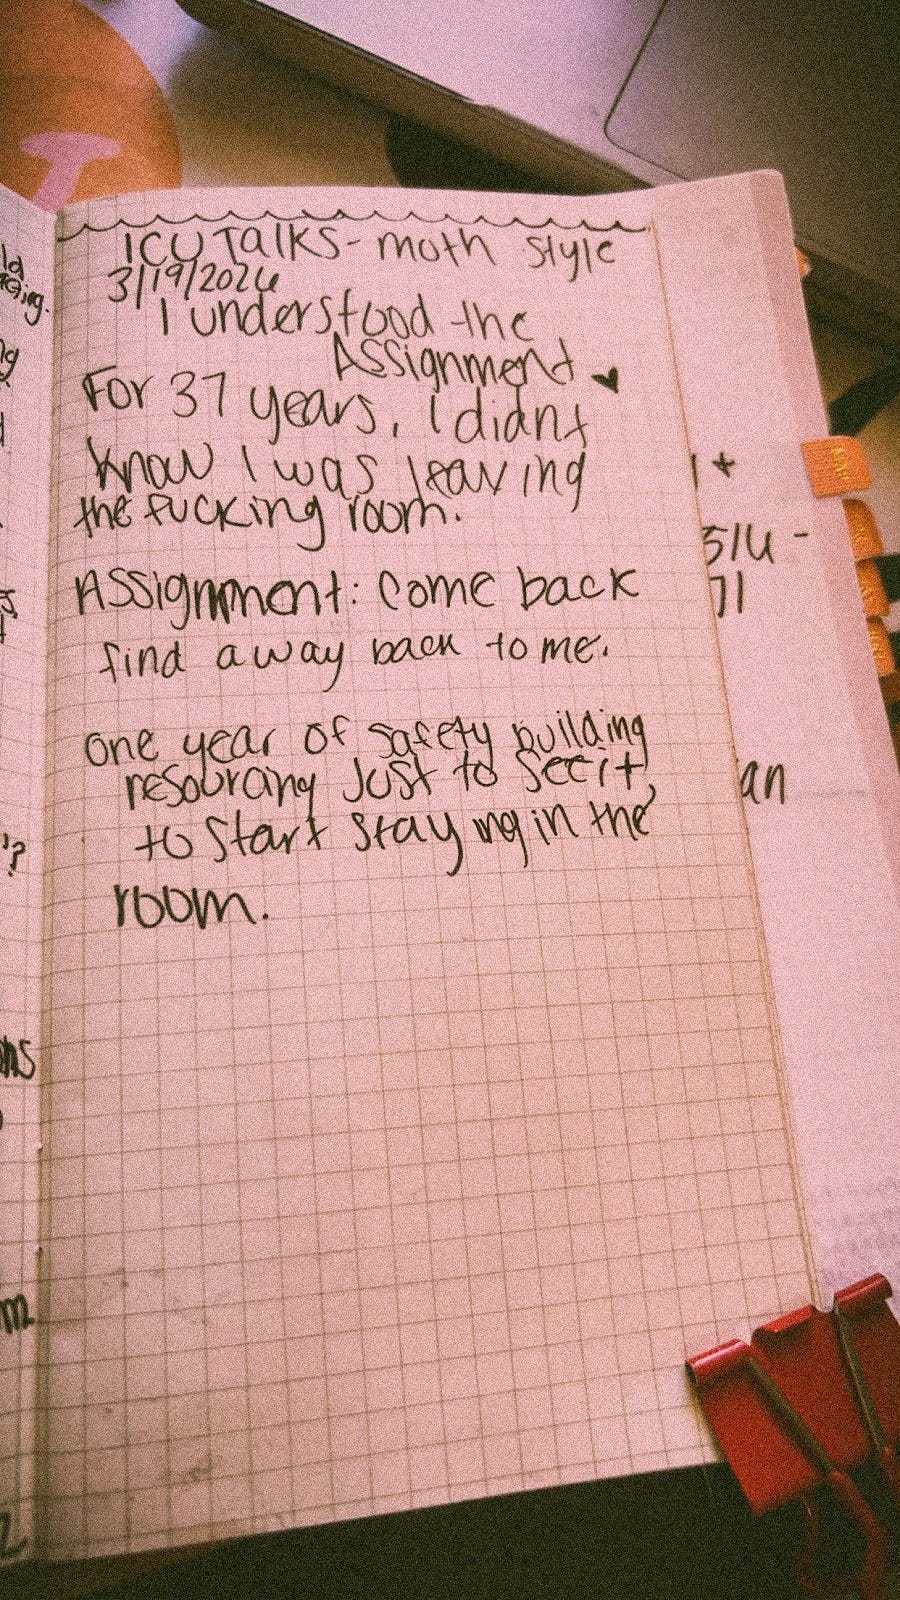 ICU Talks - moth style
3/19/2026
I understood the
Assignment ♥
For 37 years, I didn't
know I was leaving
the fucking room.
Assignment: Come back
find a way back to me.
one year of safety building
resourcing Just to see it,
to start staying in the
room.
1 +
51U -
71
an
ld
ng
?
ms
m.